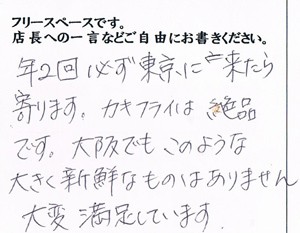 フリースペースです。
店長への一言などご自由にお書きください。
年2回必ず東京に来たら
寄ります。カキフライは絶品
です。大阪でもこのような
大きく新鮮なものはありません
大変満足しています